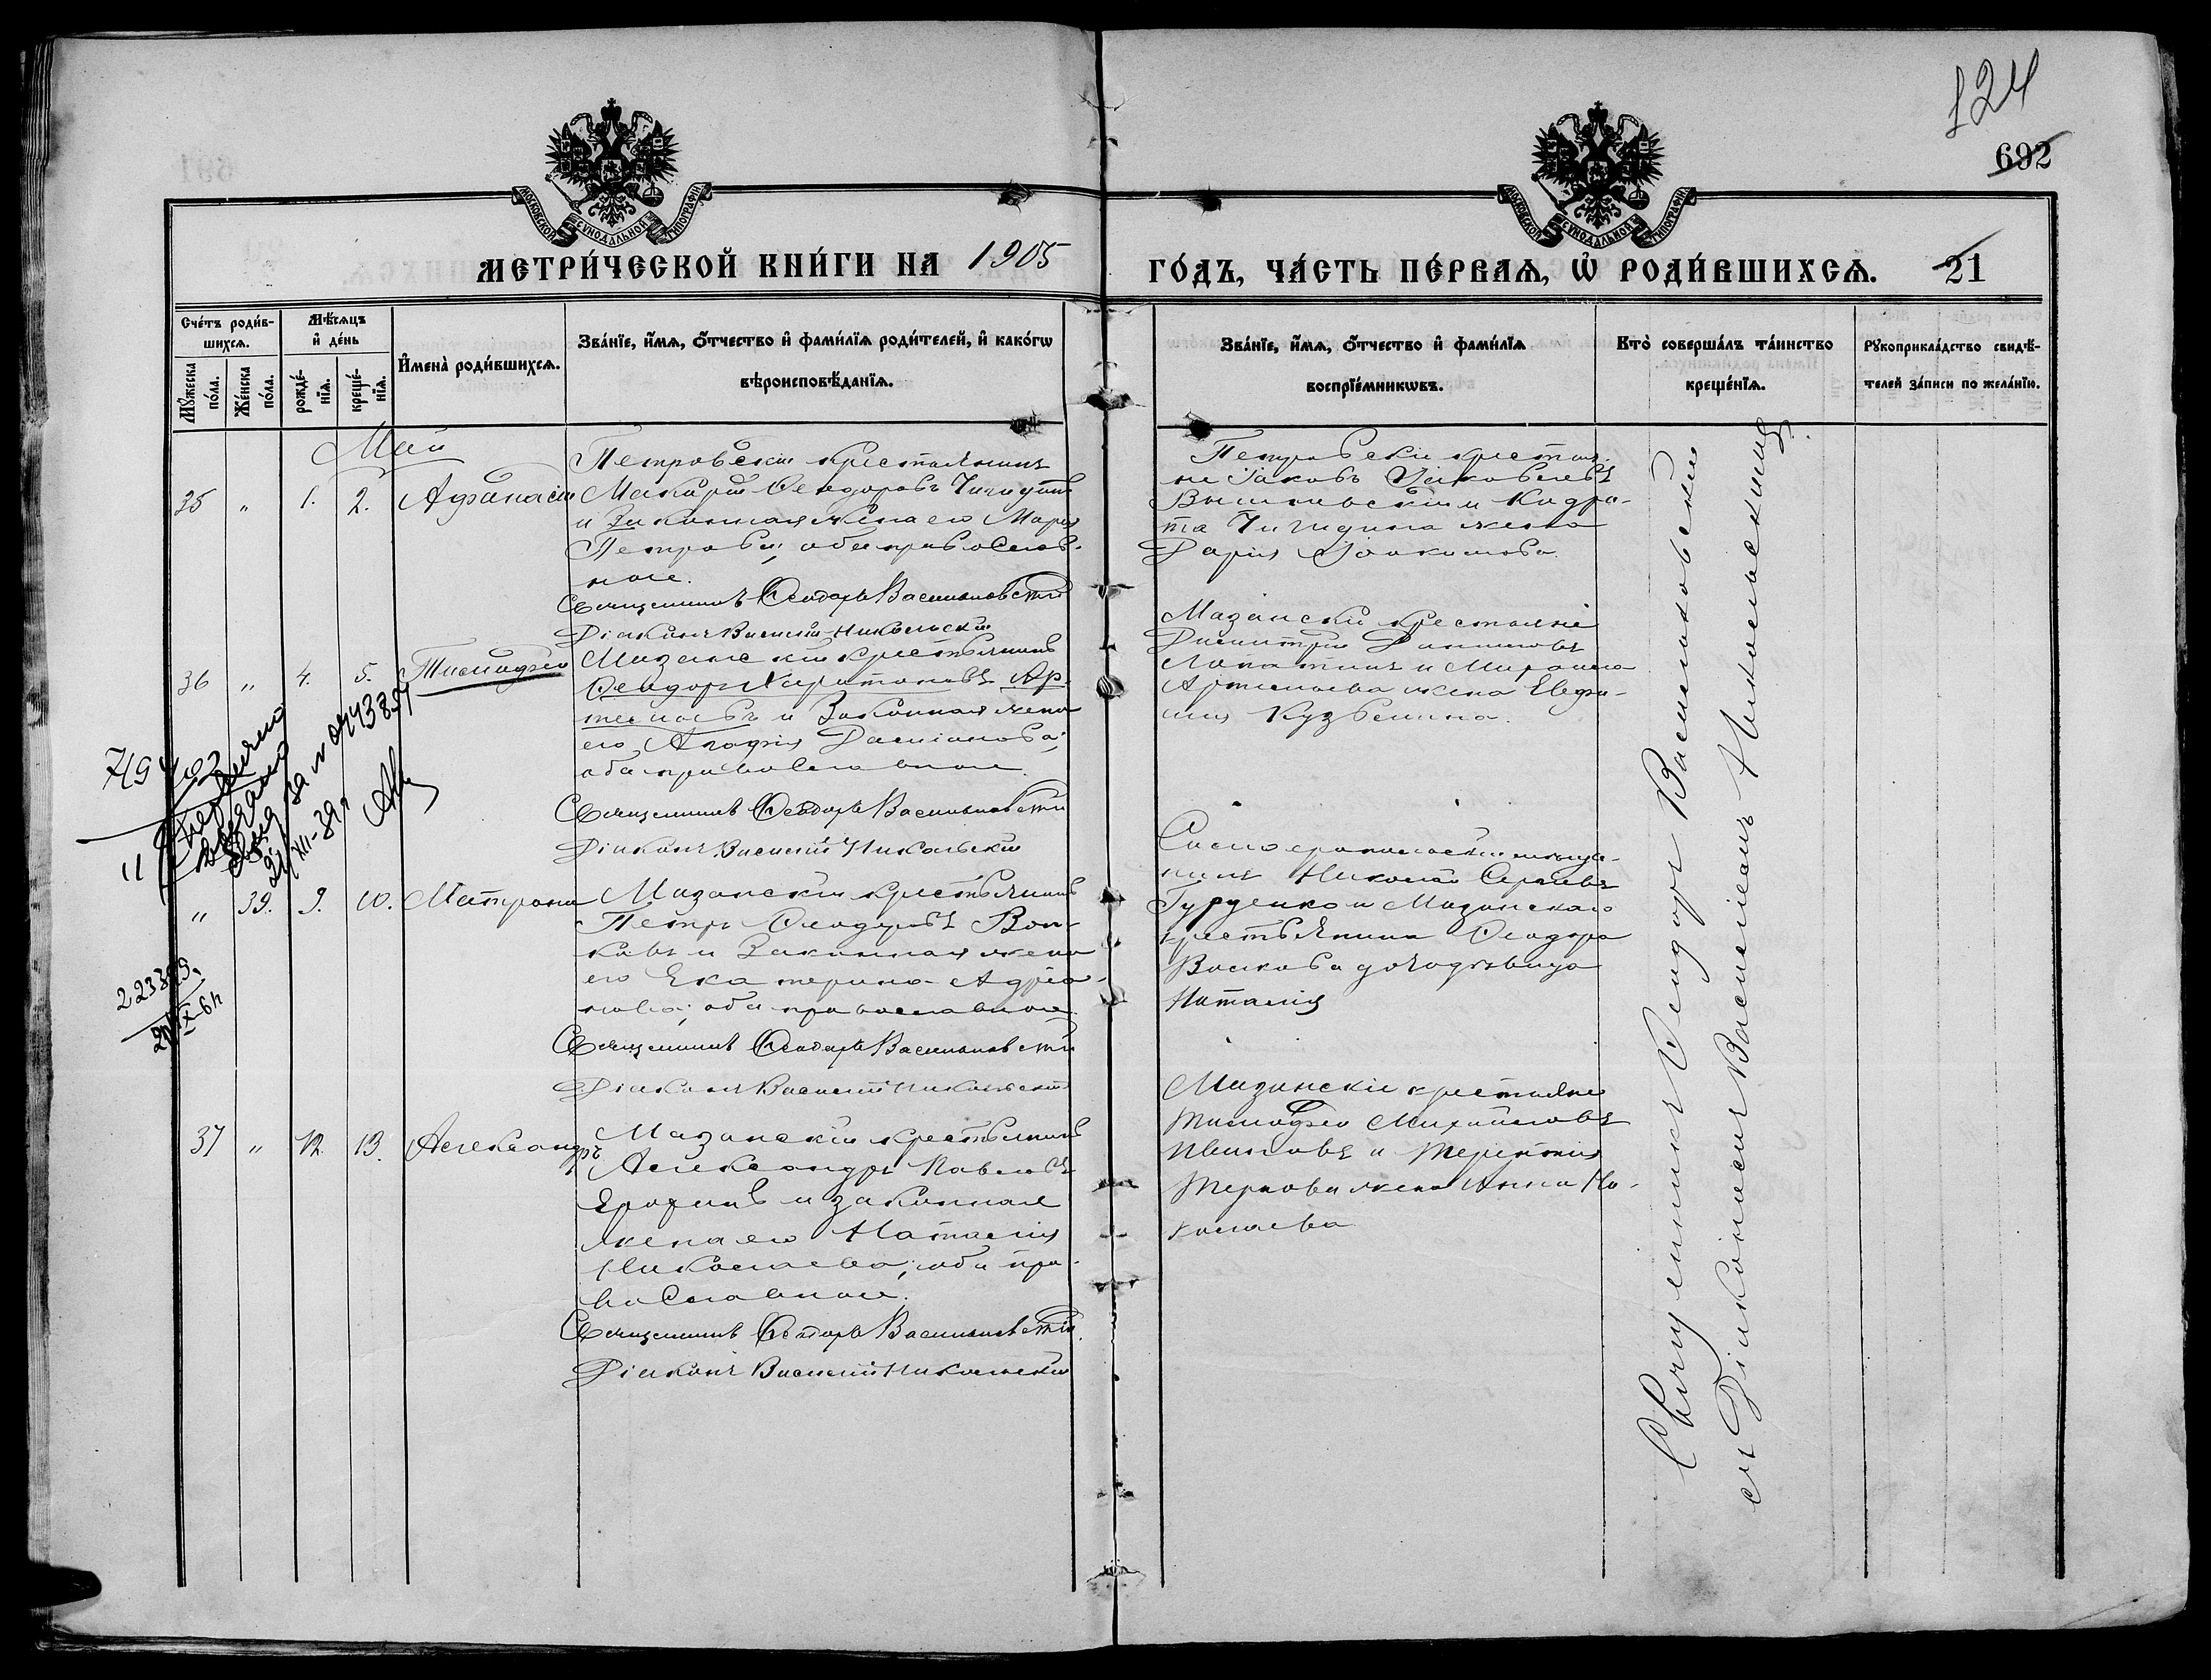 124
692
МОСКОВСКОЙ СѴНОДАЛЬНОЙ ТИПОГРАФІИ
МОСКОВСКОЙ СѴНОДАЛЬНОЙ ТИПОГРАФІИ
МЕТРИ́ЧЕСКОЙ КНИ́ГИ НА 1905
ГО́ДЪ, ЧА́СТЬ ПЕ́РВАѦ, Ѡ҆ РОДИ́ВШИХСѦ. 21
Сче́тъ роди́в-
шихсѧ.
Мꙋ́жеска по́ла.
Же́нска по́ла.
Мѣ́сѧцъ
и҆ де́нь
рожде́-
нїѧ.
креще́-
нїѧ.
И҆мена̀ роди́вшихсѧ.
Зва́нїе, и҆́мѧ, ѻ҆́тчество и҆ фами́лїѧ роди́телей, и҆ како́гѡ
вѣроисповѣ́данїѧ.
Зва́нїе, и҆́мѧ, ѻ҆́тчество и҆ фами́лїѧ
воспрїе́мникѡвъ.
Кто̀ соверша́лъ та́инство
креще́нїѧ.
Рꙋкоприкла́дство свидѣ́-
телей за́писи по жела́нїю.
Май
35 " 1. 2. Афанасій
Петровскій крестьянинъ
Макарій Ѳеодоровъ Чигидинъ
и законная жена его Марія
Петрова; оба православ-
ные.
Священникъ Ѳеодоръ Васильковскій
Діаконъ Василій Никольскій
Петровскіе крестья-
не Іаковъ Іаковлевъ
и Кодра-
та Чигидина жена
Дарія Іоакимова.
36 " 4. 5. Тимофей
Мазанскій крестьянинъ
Ѳеодоръ Харитоновъ Ар-
темьевъ и законная жена
его Агафія Даміанова;
оба православные.
Священникъ Ѳеодоръ Васильковскій
Діаконъ Василій Никольскій
Мазанскіе крестьяне
Димитрій
Лопатинъ и
Артемьева жена Евфи-
мія Кузьмина.
" 39. 9. 10. Матрона
Мазанскій крестьянинъ
Петръ Ѳеодоровъ Вол-
ковъ и законная жена
его Екатерина Адріа-
нова; оба православные.
Священникъ Ѳеодоръ Васильковскій
Діаконъ Василій Никольскій
мѣща-
нинъ Николай Сергіевъ
и Мазанскаго
крестьянина Ѳеодора
Волкова дочь дѣвица
Наталія
223893.
37 " 12. 13. Александръ
Мазанскій крестьянинъ
Александръ Павловъ
Ерофинъ и законная
жена его Наталія
Николаева; оба пра-
вославные.
Священникъ Ѳеодоръ Васильковскій.
Діаконъ Василій Никольскій
Мазанскіе крестьяне
Тимофей Михайловъ
Ивановъ и Терентія
Тернова жена Анна Ни-
колаева
Священникъ Ѳеодоръ Васильковскій
съ Діакономъ Василіемъ Никольскимъ.